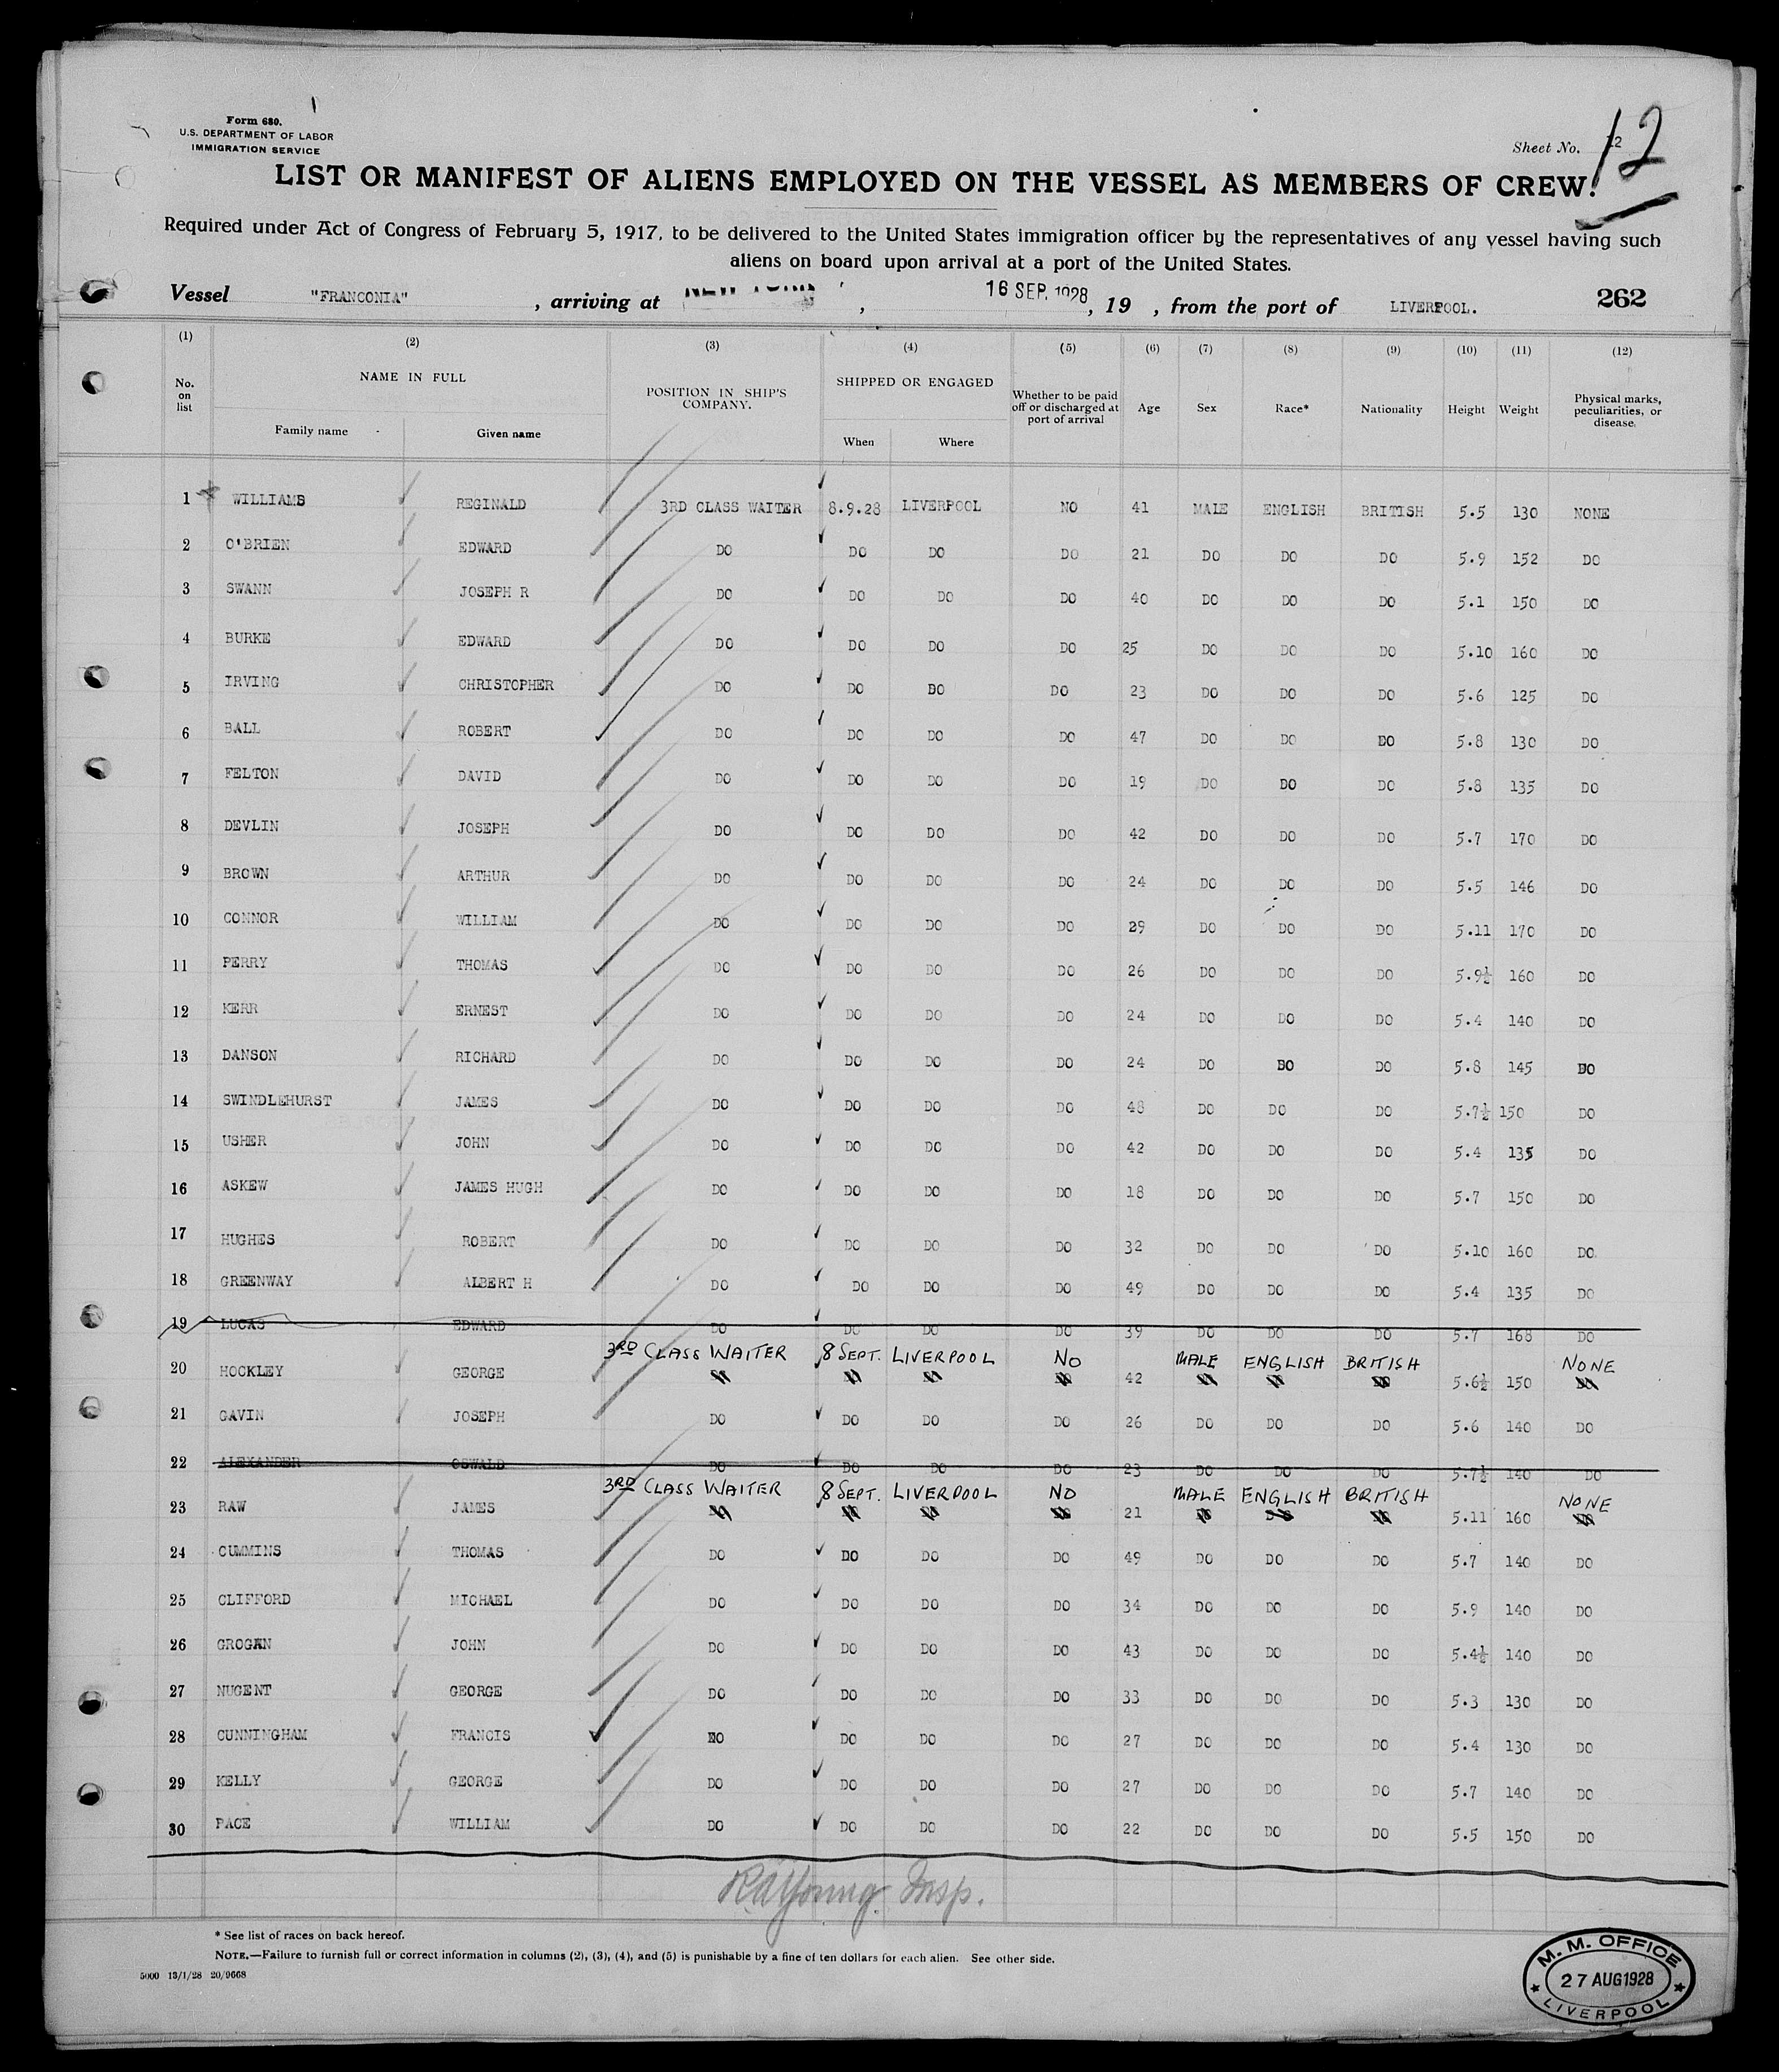 Form 680.
U.S. DEPARTMENT OF LABOR
IMMIGRATION SERVICE
Sheet No. 12
12
LIST OR MANIFEST OF ALIENS EMPLOYED ON THE VESSEL AS MEMBERS OF CREW.
Required under Act of Congress of February 5, 1917, to be delivered to the United States immigration officer by the representatives of any vessel having such
aliens on board upon arrival at a port of the United States.
Vessel "FRANCONIA", arriving at NEW YORK, 16 SEP. 1928, 19 , from the port of LIVERPOOL. 262
(1) (2) (3) (4) (5) (6) (7) (8) (9) (10) (11) (12)
No. on list NAME IN FULL POSITION IN SHIP'S COMPANY. SHIPPED OR ENGAGED Whether to be paid off or discharged at port of arrival Age Sex Race* Nationality Height Weight Physical marks, peculiarities, or disease.
Family name Given name When Where
1 WILLIAMS REGINALD 3RD CLASS WAITER 8.9.28 LIVERPOOL NO 41 MALE ENGLISH BRITISH 5.5 130 NONE
2 O'BRIEN EDWARD DO DO DO DO 21 DO DO DO 5.9 152 DO
3 SWANN JOSEPH R DO DO DO DO 40 DO DO DO 5.1 150 DO
4 BURKE EDWARD DO DO DO DO 25 DO DO DO 5.10 160 DO
5 IRVING CHRISTOPHER DO DO DO DO 23 DO DO DO 5.6 125 DO
6 BALL ROBERT DO DO DO DO 47 DO DO DO 5.8 130 DO
7 FELTON DAVID DO DO DO DO 19 DO DO DO 5.8 135 DO
8 DEVLIN JOSEPH DO DO DO DO 42 DO DO DO 5.7 170 DO
9 BROWN ARTHUR DO DO DO DO 24 DO DO DO 5.5 146 DO
10 CONNOR WILLIAM DO DO DO DO 29 DO DO DO 5.11 170 DO
11 PERRY THOMAS DO DO DO DO 26 DO DO DO 5.9½ 160 DO
12 KERR ERNEST DO DO DO DO 24 DO DO DO 5.4 140 DO
13 DANSON RICHARD DO DO DO DO 24 DO DO DO 5.8 145 DO
14 SWINDLEHURST JAMES DO DO DO DO 48 DO DO DO 5.7½ 150 DO
15 USHER JOHN DO DO DO DO 42 DO DO DO 5.4 135 DO
16 ASKEW JAMES HUGH DO DO DO DO 18 DO DO DO 5.7 150 DO
17 HUGHES ROBERT DO DO DO DO 32 DO DO DO 5.10 160 DO
18 GREENWAY ALBERT H DO DO DO DO 49 DO DO DO 5.4 135 DO
19 LUCAS EDWARD DO DO DO DO 39 DO DO DO 5.7 168 DO
3RD CLASS WAITER 8 SEPT. LIVERPOOL NO MALE ENGLISH BRITISH NONE
20 HOCKLEY GEORGE 42 5.6½ 150
21 GAVIN JOSEPH DO DO DO DO 26 DO DO DO 5.6 140 DO
22 ALEXANDER OSWALD DO DO DO DO 23 DO DO DO 5.7½ 140 DO
3RD CLASS WAITER 8 SEPT. LIVERPOOL NO MALE ENGLISH BRITISH NONE
23 RAW JAMES 21 5.11 160
24 CUMMINS THOMAS DO DO DO DO 49 DO DO DO 5.7 140 DO
25 CLIFFORD MICHAEL DO DO DO DO 34 DO DO DO 5.9 140 DO
26 GROGAN JOHN DO DO DO DO 43 DO DO DO 5.4½ 140 DO
27 NUGENT GEORGE DO DO DO DO 33 DO DO DO 5.3 130 DO
28 CUNNINGHAM FRANCIS DO DO DO DO 27 DO DO DO 5.4 130 DO
29 KELLY GEORGE DO DO DO DO 27 DO DO DO 5.7 140 DO
30 PACE WILLIAM DO DO DO DO 22 DO DO DO 5.5 150 DO
R A Young Insp.
* See list of races on back hereof.
NOTE.—Failure to furnish full or correct information in columns (2), (3), (4), and (5) is punishable by a fine of ten dollars for each alien. See other side.
5000 13/1/28 20/9668
M. M. OFFICE
27 AUG 1928
LIVERPOOL